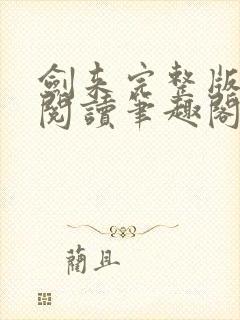 劍來完整版
閱讀筆趣閣
藺且